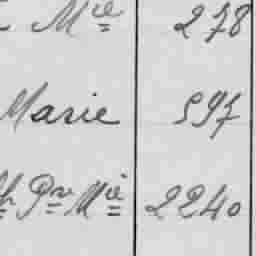 Mie 278
Marie 597
Pre Mie 2240